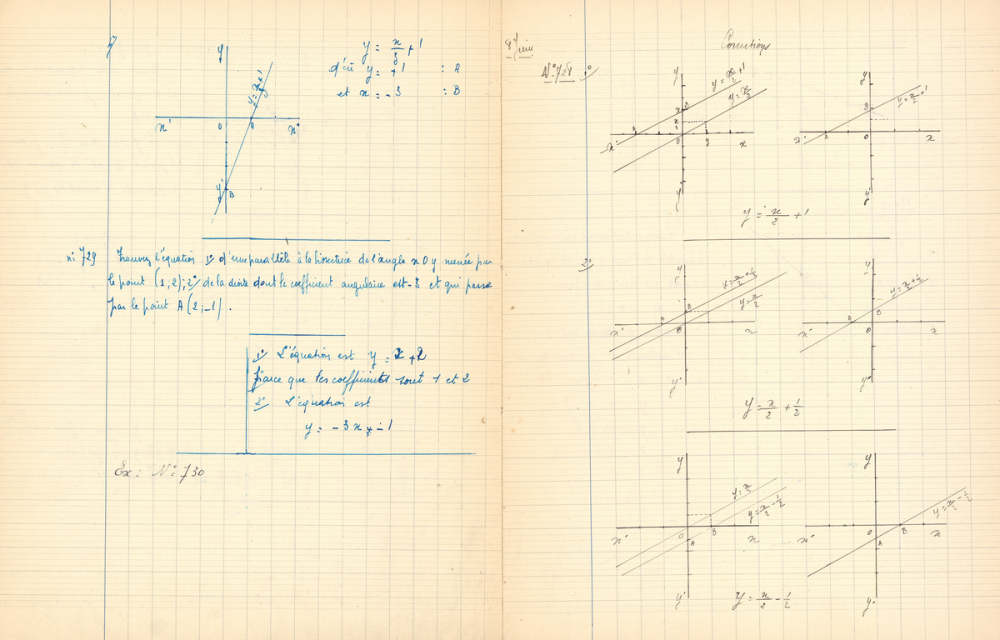 y = x/3 + 1
d'où y = + 1 : A
et x = - 3 : B
y
x'
0
A
x
y'
B
n: 729 Trouvez l'équation 1° d'une parallèle à la bissectrice de l'angle x O y menée par
le point (1,2); 2° de la droite dont le coefficient angulaire est -3 et qui passe
par le point A (2,-1).
1° L'équation est y = x + 2
Parce que les coefficients sont 1 et 2
2° L'équation est
y = - 3 x + - 1
Ex: N° 730
8 Juin
Corrections
N° 728 1°
y = x/2 + 1
y = x/2
y = x/2 + 1
y = x/2 + 1
y = x/2 + 1/2
y = x/2
y = x/2 + 1/2
y = x/2 + 1/2
y = x/2
y = x/2 - 1/2
y = x/2 - 1/2
y = x/2 - 1/2